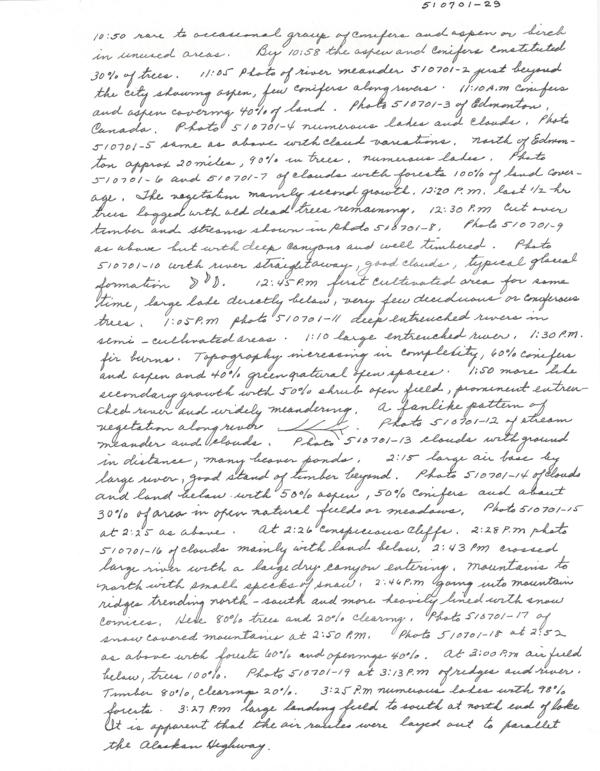 510701-29
10:50 rare to occasional group of conifers and aspen or birch
in unused areas. By 10:58 the aspen and conifers constituted
30% of trees. 11:05 Photo of river meander 510701-2 just beyond
the city showing aspen, few conifers along rivers. 11:10 A.M conifers
and aspen covering 40% of land. Photo 510701-3 of Edmonton,
Canada. Photo 510701-4 numerous lakes and clouds. Photo
510701-5 same as above with cloud variations. North of Edmon-
ton approx 20 miles, 90% in trees. numerous lakes. Photo
510701-6 and 510701-7 of clouds with forests 100% of land cover-
age. The vegetation mainly second growth. 12:20 P.M. last 1/2 hr
trees logged with old dead trees remaining. 12:30 P.M Cut over
timber and streams shown in photo 510701-8. Photo 510701-9
as above but with deep canyons and well timbered. Photo
510701-10 with river straightaway, good clouds, typical glacial
formation. 12:45 P.M first cultivated area for some
time, large lake directly below, very few deciduous or coniferous
trees. 1:05 P.M photo 510701-11 deep entrenched rivers in
semi-cultivated areas. 1:10 large entrenched river. 1:30 P.M.
fir burns. Topography increasing in complexity, 60% conifers
and aspen and 40% green natural open spaces. 1:50 more like
secondary growth with 50% shrub open field, prominent entren-
ched river and widely meandering. A fanlike pattern of
vegetation along river. Photo 510701-12 of stream
meander and clouds. Photo 510701-13 clouds with ground
in distance, many beaver ponds. 2:15 large air base by
large river, good stand of timber beyond. Photo 510701-14 of clouds
and land below with 50% aspen, 50% conifers and about
30% of area in open natural fields or meadows. Photo 510701-15
at 2:25 as above. At 2:26 conspicious cleffs. 2:28 P.M photo
510701-16 of clouds mainly with land below. 2:43 PM crossed
large river with a large dry canyon entering. Mountains to
north with small specks of snow. 2:46 P.M going into mountain
ridges trending north-south and more heavily lined with snow
cornices. Here 80% trees and 20% clearing. Photo 510701-17 of
snow covered mountains at 2:50 P.M. Photo 510701-18 at 2:52
as above with forests 60% and openings 40%. At 3:00 P.M air field
below, trees 100%. Photo 510701-19 at 3:13 P.M of ridges and river.
Timber 80%, clearing 20%. 3:25 P.M numerous lakes with 98%
forests. 3:27 P.M large landing field to south at north end of lake
It is apparent that the air routes were layed out to parallet
the Alaskan Highway.